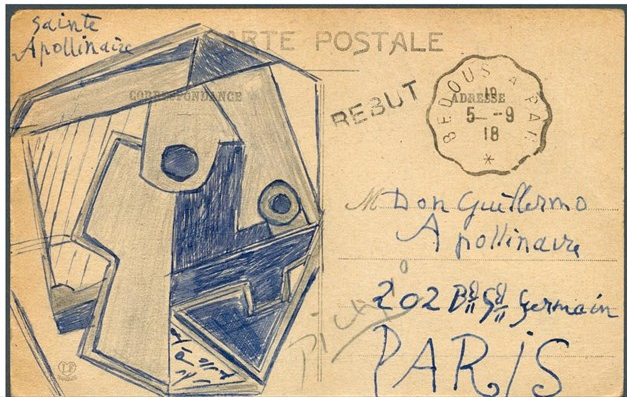 Sainte
Apollinaire
CARTE POSTALE
CORRESPONDANCE
REBUT
ADRESSE
BEDOUS A PAU
19
5-9
18
*
M Don Guillermo
Apollinaire
202 Bd St Germain
PARIS